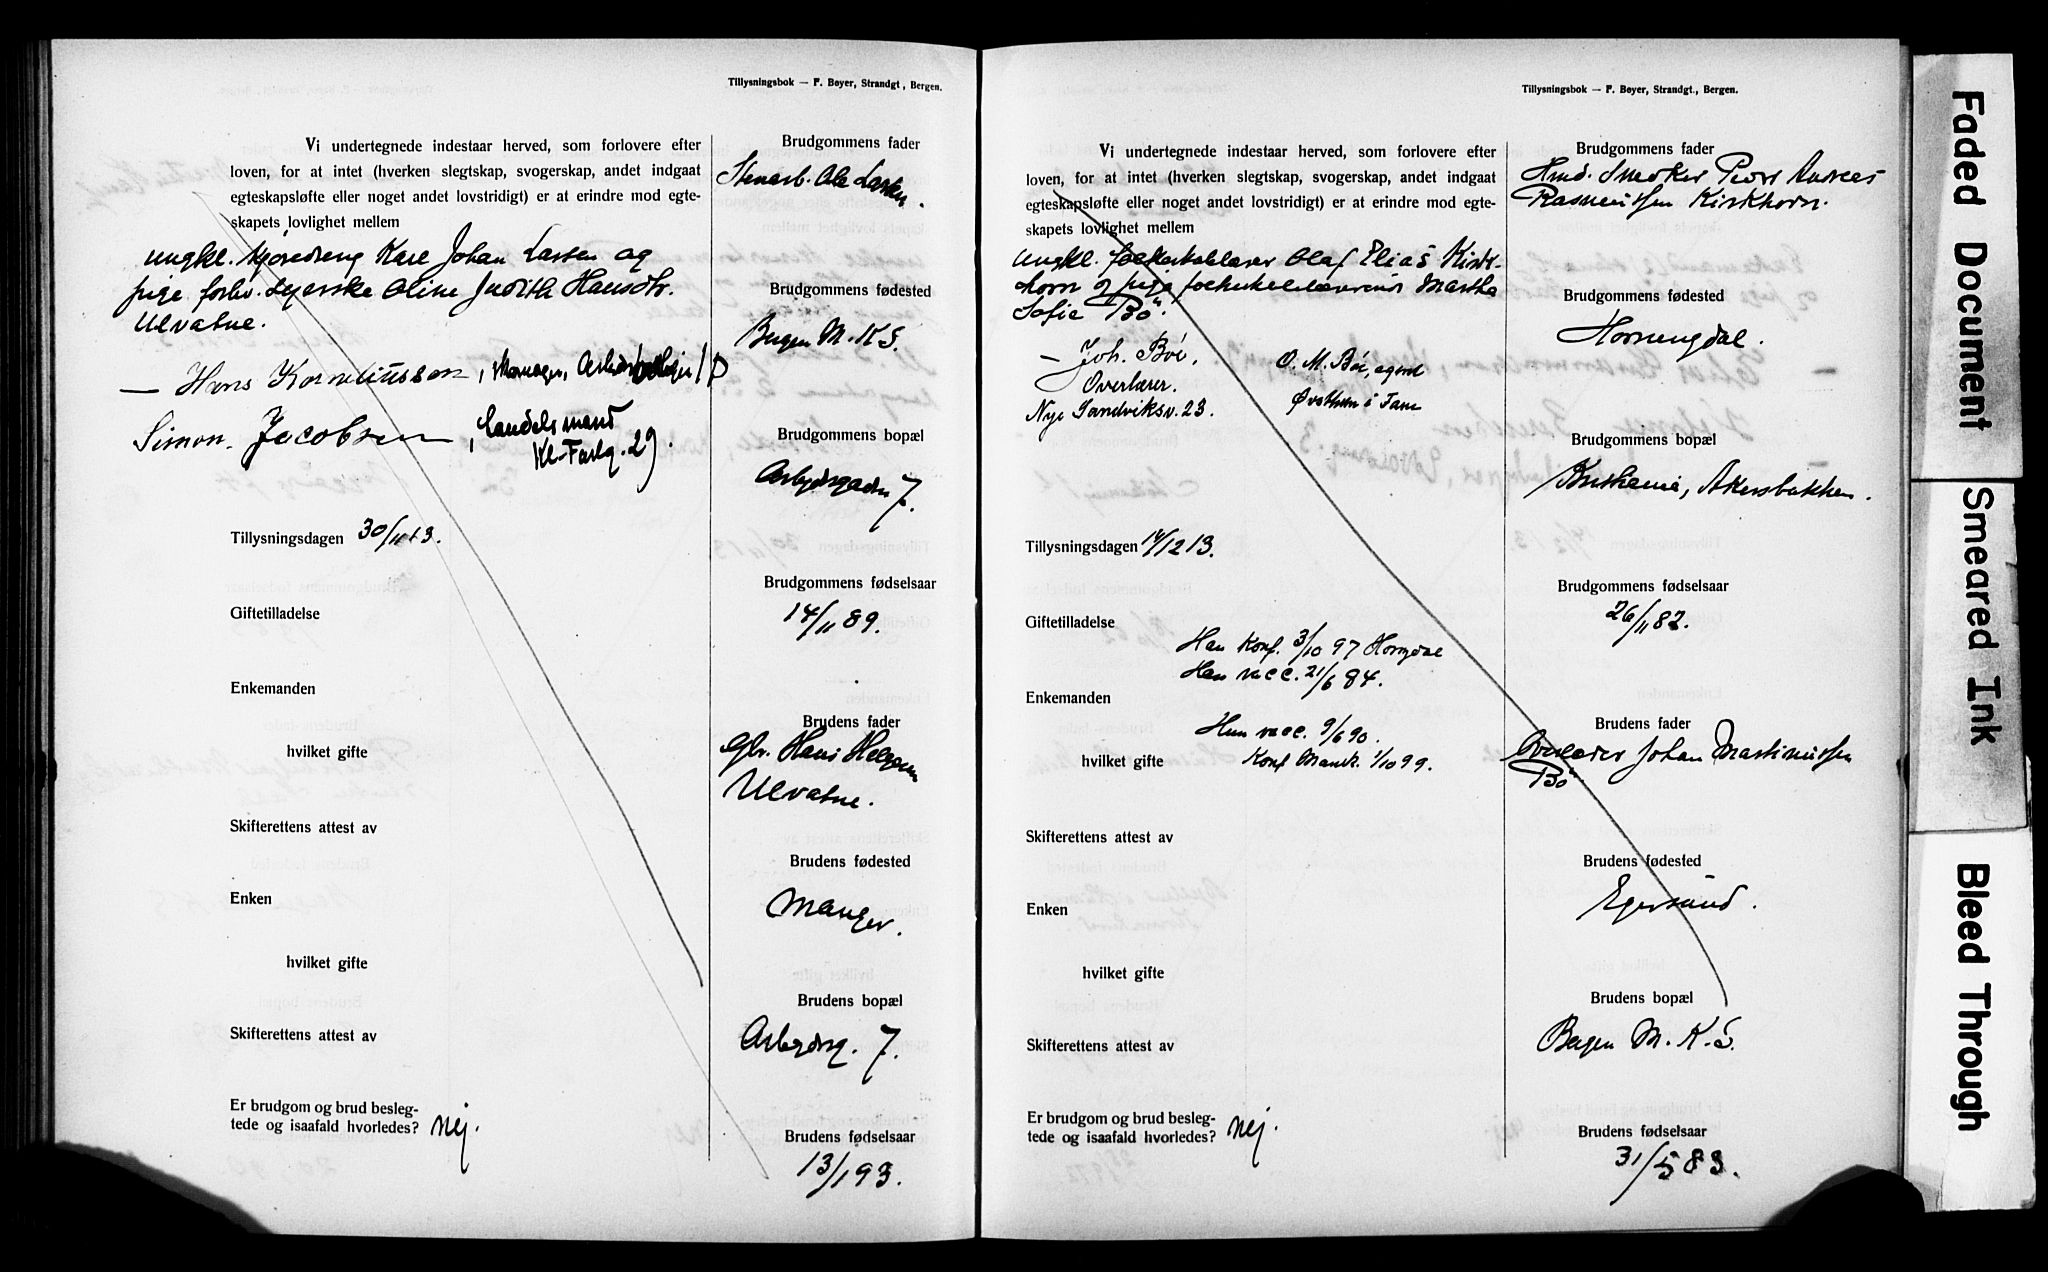 Tillysningsbok — F. Bøyer, Strandgt., Bergen.
Vi undertegnede indestaar herved, som forlovere efter
loven, for at intet (hverken slegtskap, svogerskap, andet indgaat
egteskapsløfte eller noget andet lovstridigt) er at erindre mod egte-
skapets lovlighet mellem
ungkl. kjøredreng Karl Johan Larsen og
pige forhv. syerske Oline Judith Hansdtr.
Ulvatne.
— Hans Korneliussen, Skomager,
Simon Jacobsen, Handelsmand
Kl. Farg. 29.
Tillysningsdagen 30/11 13.
Giftetilladelse
Enkemanden
hvilket gifte
Skifterettens attest av
Enken
hvilket gifte
Skifterettens attest av
Er brudgom og brud besleg-
tede og isaafald hvorledes? Nej.
Brudgommens fader
Stenarb. Ole Larsen.
Brudgommens fødested
Bergen M. K S.
Brudgommens bopæl
Arbejdergaden 7.
Brudgommens fødselsaar
14/11 89.
Brudens fader
Gbr. Hans Helgesen
Ulvatne.
Brudens fødested
Manger.
Brudens bopæl
Arbejderg. 7.
Brudens fødselsaar
13/1 93.
Tillysningsbok — F. Bøyer, Strandgt., Bergen.
Vi undertegnede indestaar herved, som forlovere efter
loven, for at intet (hverken slegtskap, svogerskap, andet indgaat
egteskapsløfte eller noget andet lovstridigt) er at erindre mod egte-
skapets lovlighet mellem
ungkl. folkeskolelærer Olaf Elias Kirk-
horn og pige folkeskolelærerinde Martha
Sofie Bö.
— Joh. Böe,
Overlærer.
Nye Sandviksv. 23.
O. M. Böe, agent
Øvsttun i Fane
Tillysningsdagen 14/12 13.
Giftetilladelse
Han konf. 3/10 97 Horngdal
Han vacc. 21/6 84.
Enkemanden
Hun vacc. 9/6 90.
hvilket gifte Konf Mandal 1/10 99.
Skifterettens attest av
Enken
hvilket gifte
Skifterettens attest av
Er brudgom og brud besleg-
tede og isaafald hvorledes? Nej.
Brudgommens fader
Hmd. Snedker Peder Andreas
Rasmussen Kirkhorn.
Brudgommens fødested
Hornengdal.
Brudgommens bopæl
Kristiania, Akersbakken.
Brudgommens fødselsaar
26/11 82.
Brudens fader
Overlærer Johan Martinussen
Bö
Brudens fødested
Egersund.
Brudens bopæl
Bergen M. K. S.
Brudens fødselsaar
31/5 83.
Faded Document
Smeared Ink
Bleed Through